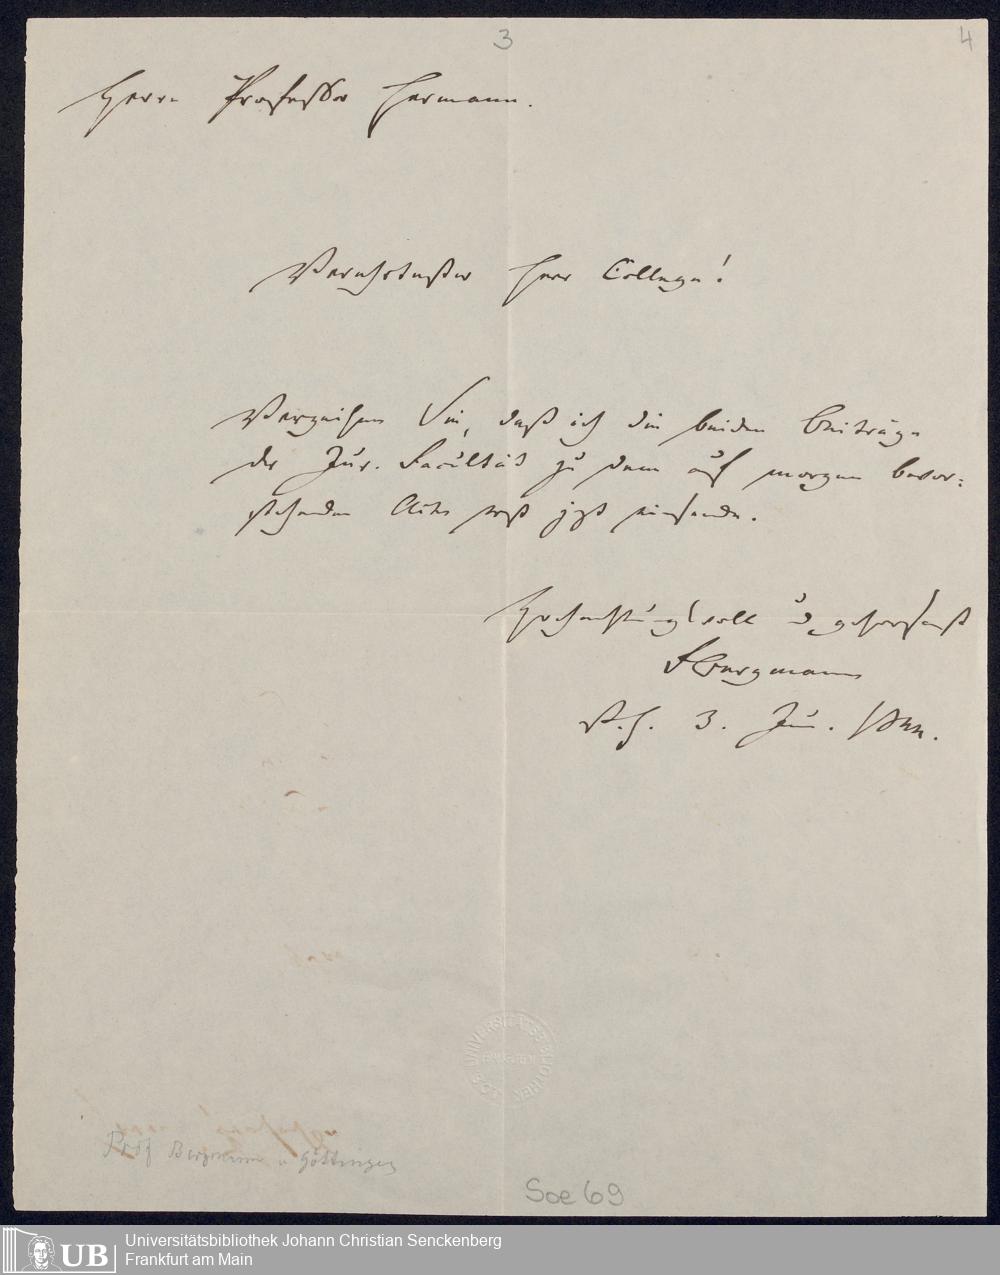 3
4
Herrn Professor Hermann.
Verehrtester Herr College!
Verzeihen Sie, daß ich die beiden Beiträge
der Jur. Facultät zu dem auf morgen bevor-
stehenden Actus erst jetzt einsende.
Hochachtungsvoll u gehorsamst
FBergmann
St. h. 3. Jun.
Prof Bergmann v Göttingen
Soe 69
UNIVERSITÄTSBIBLIOTHEK
UB
Universitätsbibliothek Johann Christian Senckenberg
Frankfurt am Main